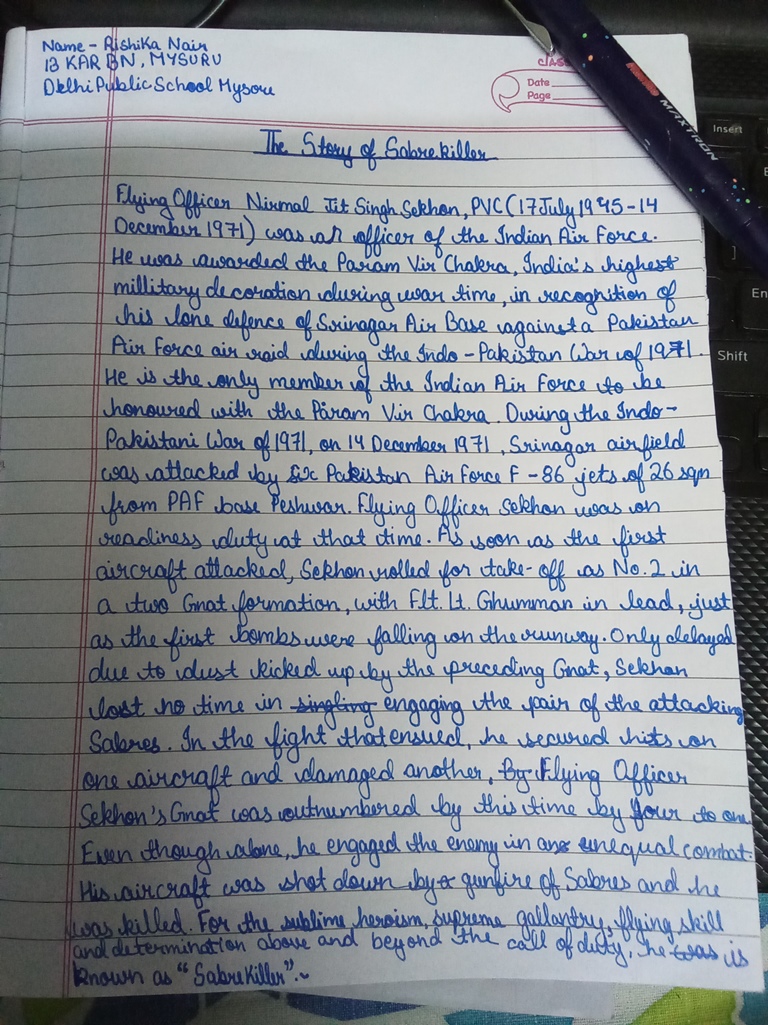 Name - Rishika Nair
13 KAR BN, MYSURU
Delhi Public School Mysore
Date
Page
MAXTRON
Insert
Shift
The Story of Sabrekiller
Flying Officer Nirmal Jit Singh Sekhon, PVC (17 July 1945 - 14
December 1971) was an officer of the Indian Air Force.
He was awarded the Param Vir Chakra, India's highest
millitary decoration during war time, in recognition of
his lone defence of Srinagar Air Base against a Pakistan
Air Force air raid during the Indo - Pakistan War of 1971.
He is the only member of the Indian Air Force to be
honoured with the Param Vir Chakra. During the Indo-
Pakistani War of 1971, on 14 December 1971, Srinagar airfield
was attacked by six Pakistan Air Force F - 86 jets of 26 sqn
from PAF base Peshwar. Flying Officer Sekhon was on
readiness duty at that time. As soon as the first
aircraft attacked, Sekhon rolled for take-off as No. 2 in
a two Gnat formation, with Flt. Lt. Ghumman in lead, just
as the first bombs were falling on the runway. Only delayed
due to dust kicked up by the preceding Gnat, Sekhon
lost no time in singling engaging the pair of the attacking
Sabres. In the fight that ensued, he secured hits on
one aircraft and damaged another. By Flying Officer
Sekhon's Gnat was outnumbered by this time by four to one
Even though alone, he engaged the enemy in an unequal combat.
His aircraft was shot down by gunfire of Sabres and he
was killed. For the sublime heroism, supreme gallantry, flying skill
and determination above and beyond the call of duty, he was is
known as "SabreKiller".